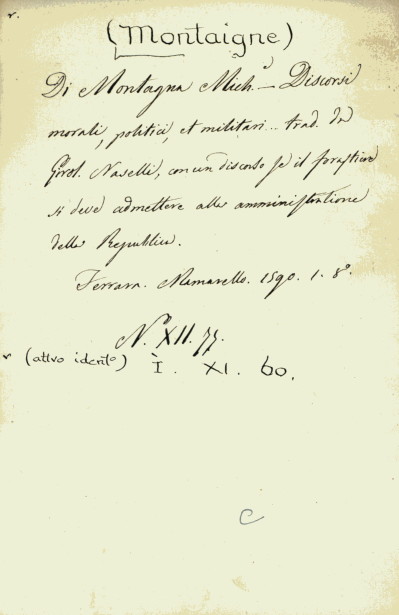 v.
(Montaigne)
Di Montagna Mich.º — Discorsi
morali, politici, et militari... trad. da
Girol. Naselli, con un discorso se il forastiere
si deve admettere alla amministratione
della Republica.
Ferrara. Mamarello. 1590. 1. 8º
Nº XII. 77.
v (altro identº) I. XI. 60.
C